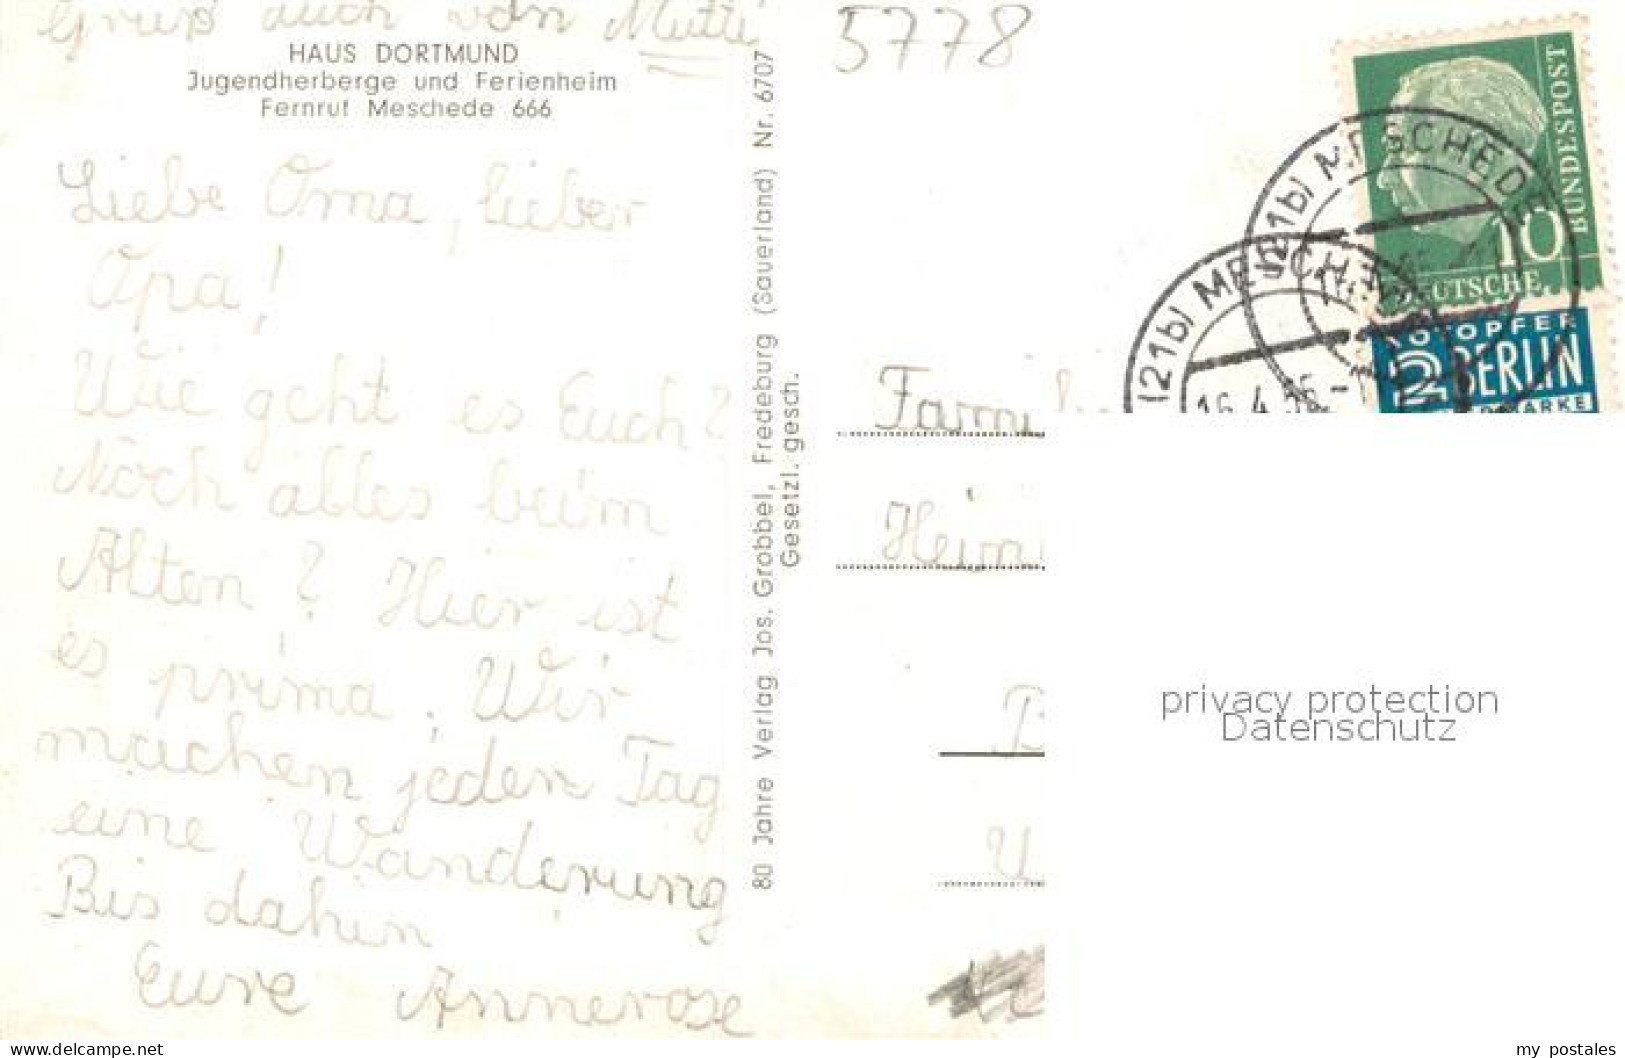 Gruß auch von Mutti
HAUS DORTMUND
Jugendherberge und Ferienheim
Fernruf Meschede 666
Liebe Oma, lieber
Opa!
Wie geht es Euch?
Noch alles beim
Alten? Hier ist
es prima. Wir
machen jeden Tag
eine Wanderung
Bis dahin
Eure Annerose
80 Jahre Verlag Jos. Grobbel, Fredeburg (Sauerland) Nr. 6707
Gesetzl. gesch.
5778
DEUTSCHE
BUNDESPOST
10
(21b) MESCHEDE
(21b) MESCHEDE
16.4.
NOTOPFER
2 BERLIN
Fami
Hein
B
U
privacy protection
Datenschutz
www.delcampe.net
my_postales